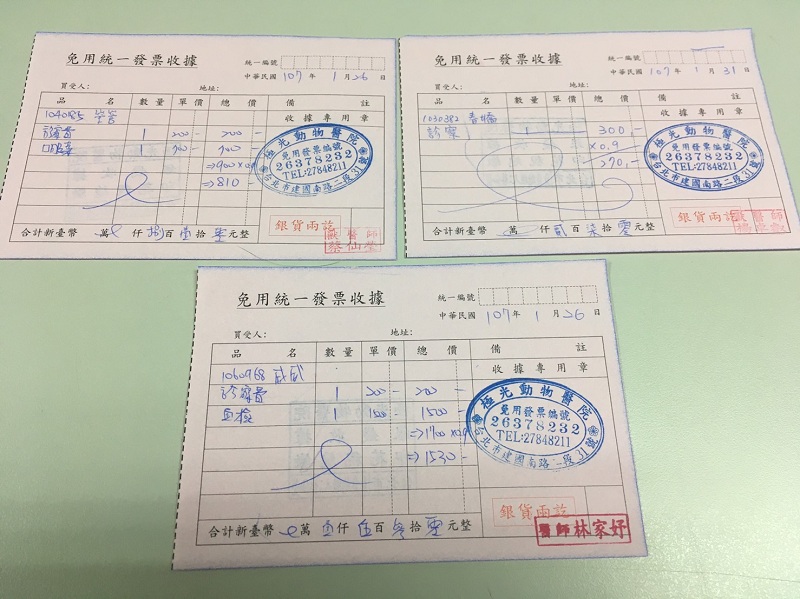 免用統一發票收據
統一編號
中華民國 107 年 1 月 26 日
買受人： 地址：
品 名 數 量 單 價 總 價 備 註
收 據 專 用 章
1040185
診察費 1 200 - 200 -
1 700 - 700 -
⇒ 900 × 0.9
⇒ 810 -
極光動物醫院
免用發票編號
26378232
TEL:27848211
台北市建國南路二段31號
銀貨兩訖
合計新臺幣 萬 仟 捌 百 壹 拾 零 元整
免用統一發票收據
統一編號
中華民國 107 年 1 月 31 日
買受人： 地址：
品 名 數 量 單 價 總 價 備 註
收 據 專 用 章
1030382
診察 1 300.-
×0.9
270.-
極光動物醫院
免用發票編號
26378232
TEL:27848211
台北市建國南路二段31號
銀貨兩訖
合計新臺幣 萬 仟 貳 百 柒 拾 零 元整
免用統一發票收據
統一編號
中華民國 107 年 1 月 26 日
買受人： 地址：
品 名 數 量 單 價 總 價 備 註
收 據 專 用 章
1060968 威威
診察費 1 200 - 200 -
血檢 1 1500 - 1500 -
⇒ 1700 × 0.9
⇒ 1530 -
極光動物醫院
免用發票編號
26378232
TEL:27848211
台北市建國南路二段31號
銀貨兩訖
醫師 林家妤
合計新臺幣 萬 壹 仟 伍 百 參 拾 零 元整